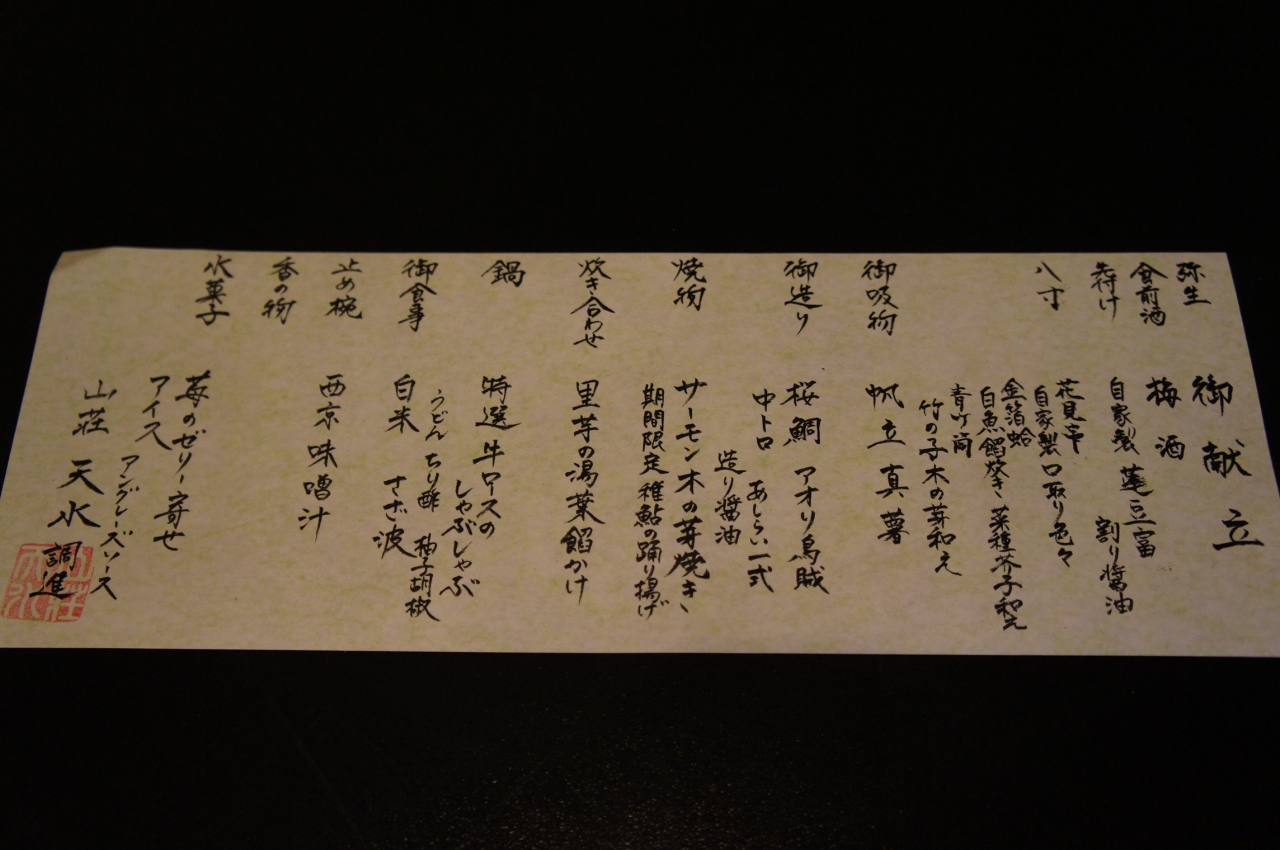 御献立
弥生
食前酒 梅酒
先付け 自家製 蓮豆富 割り醤油
八寸 花見串
自家製口取り色々
金箔蛤
白魚餡炊き、菜種芥子和え
青竹筒
竹の子木の芽和え
御吸物 帆立真薯
御造り 桜鯛 アオリ烏賊
中トロ あしらい一式
造り醤油
焼物 サーモン木の芽焼き、
期間限定 稚鮎の踊り揚げ
炊き合わせ 里芋の湯葉餡かけ
鍋 特選 牛ロースの
しゃぶしゃぶ
うどん ちり酢 柚子胡椒
御食事 白米 さざ波
止め椀 西京味噌汁
香の物
水菓子 苺のゼリー寄せ
アイス アングレーズソース
山荘 天水 調進